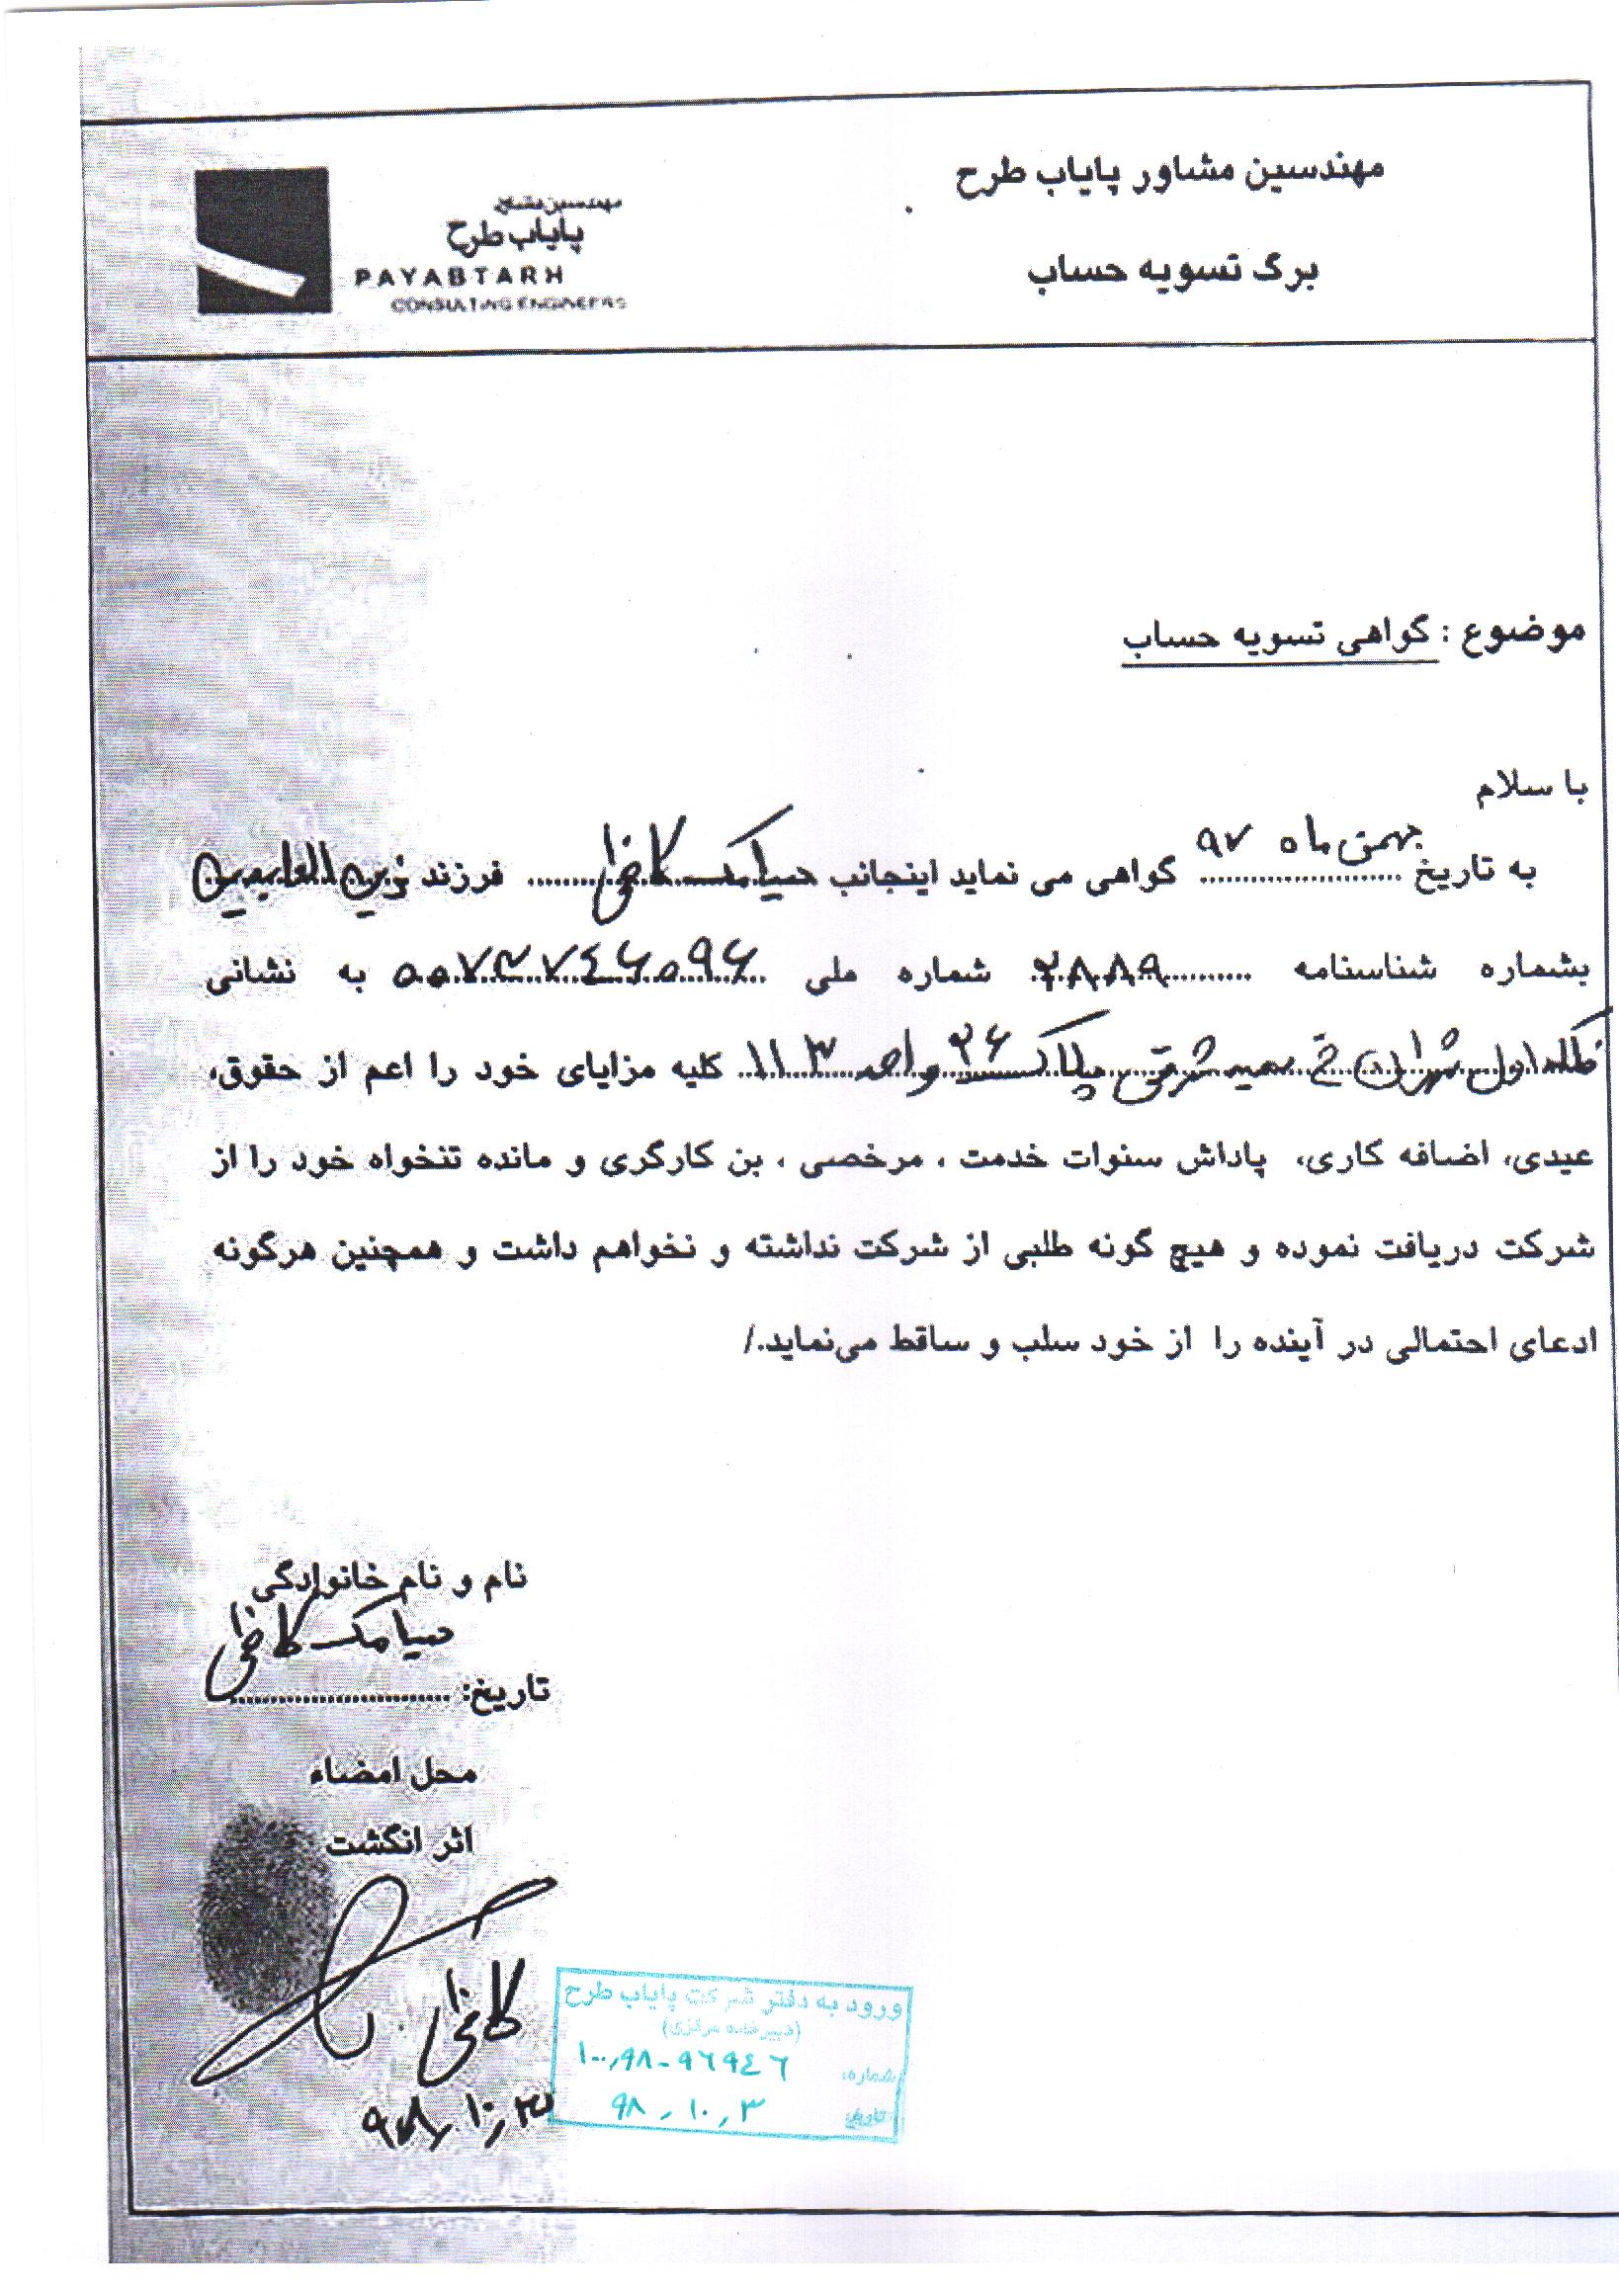 مهندسین مشاور پایاب طرح
برگ تسویه حساب
مهندسین مشاور
پایاب طرح
PAYABTARH
CONSULTING ENGINEERS
موضوع : گواهی تسویه حساب
با سلام
به تاریخ بهمن ماه ۹۷ گواهی می نماید اینجانب سیامک کاظمی فرزند زین العابدین
بشماره شناسنامه ۲۸۸۹ شماره ملی به نشانی
فلکه اول تهران خ شرقی پلاک ۲۶ واحد ۱۱۳ کلیه مزایای خود را اعم از حقوق،
عیدی، اضافه کاری، پاداش سنوات خدمت ، مرخصی ، بن کارگری و مانده تنخواه خود را از
شرکت دریافت نموده و هیچ گونه طلبی از شرکت نداشته و نخواهم داشت و همچنین هرگونه
ادعای احتمالی در آینده را از خود سلب و ساقط می‌نماید./
نام و نام خانوادگی
سیامک کاظمی
تاریخ: ........................
محل امضاء
اثر انگشت
کاظمی
ورود به دفتر شرکت پایاب طرح
(دبیرخانه مرکزی)
شماره: ۱۰۰,۹۸-۹۶۹۴۶
تاریخ: ۹۸,۱۰,۳